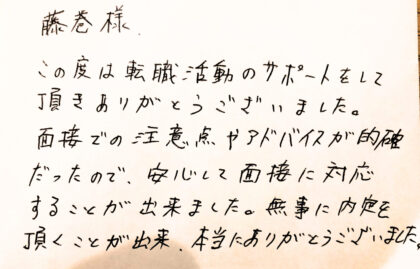 藤巻様.
この度は転職活動のサポートをして
頂きありがとうございました。
面接での注意点やアドバイスが的確
だったので、安心して面接に対応
することが出来ました。無事に内定を
頂くことが出来、本当にありがとうございました。